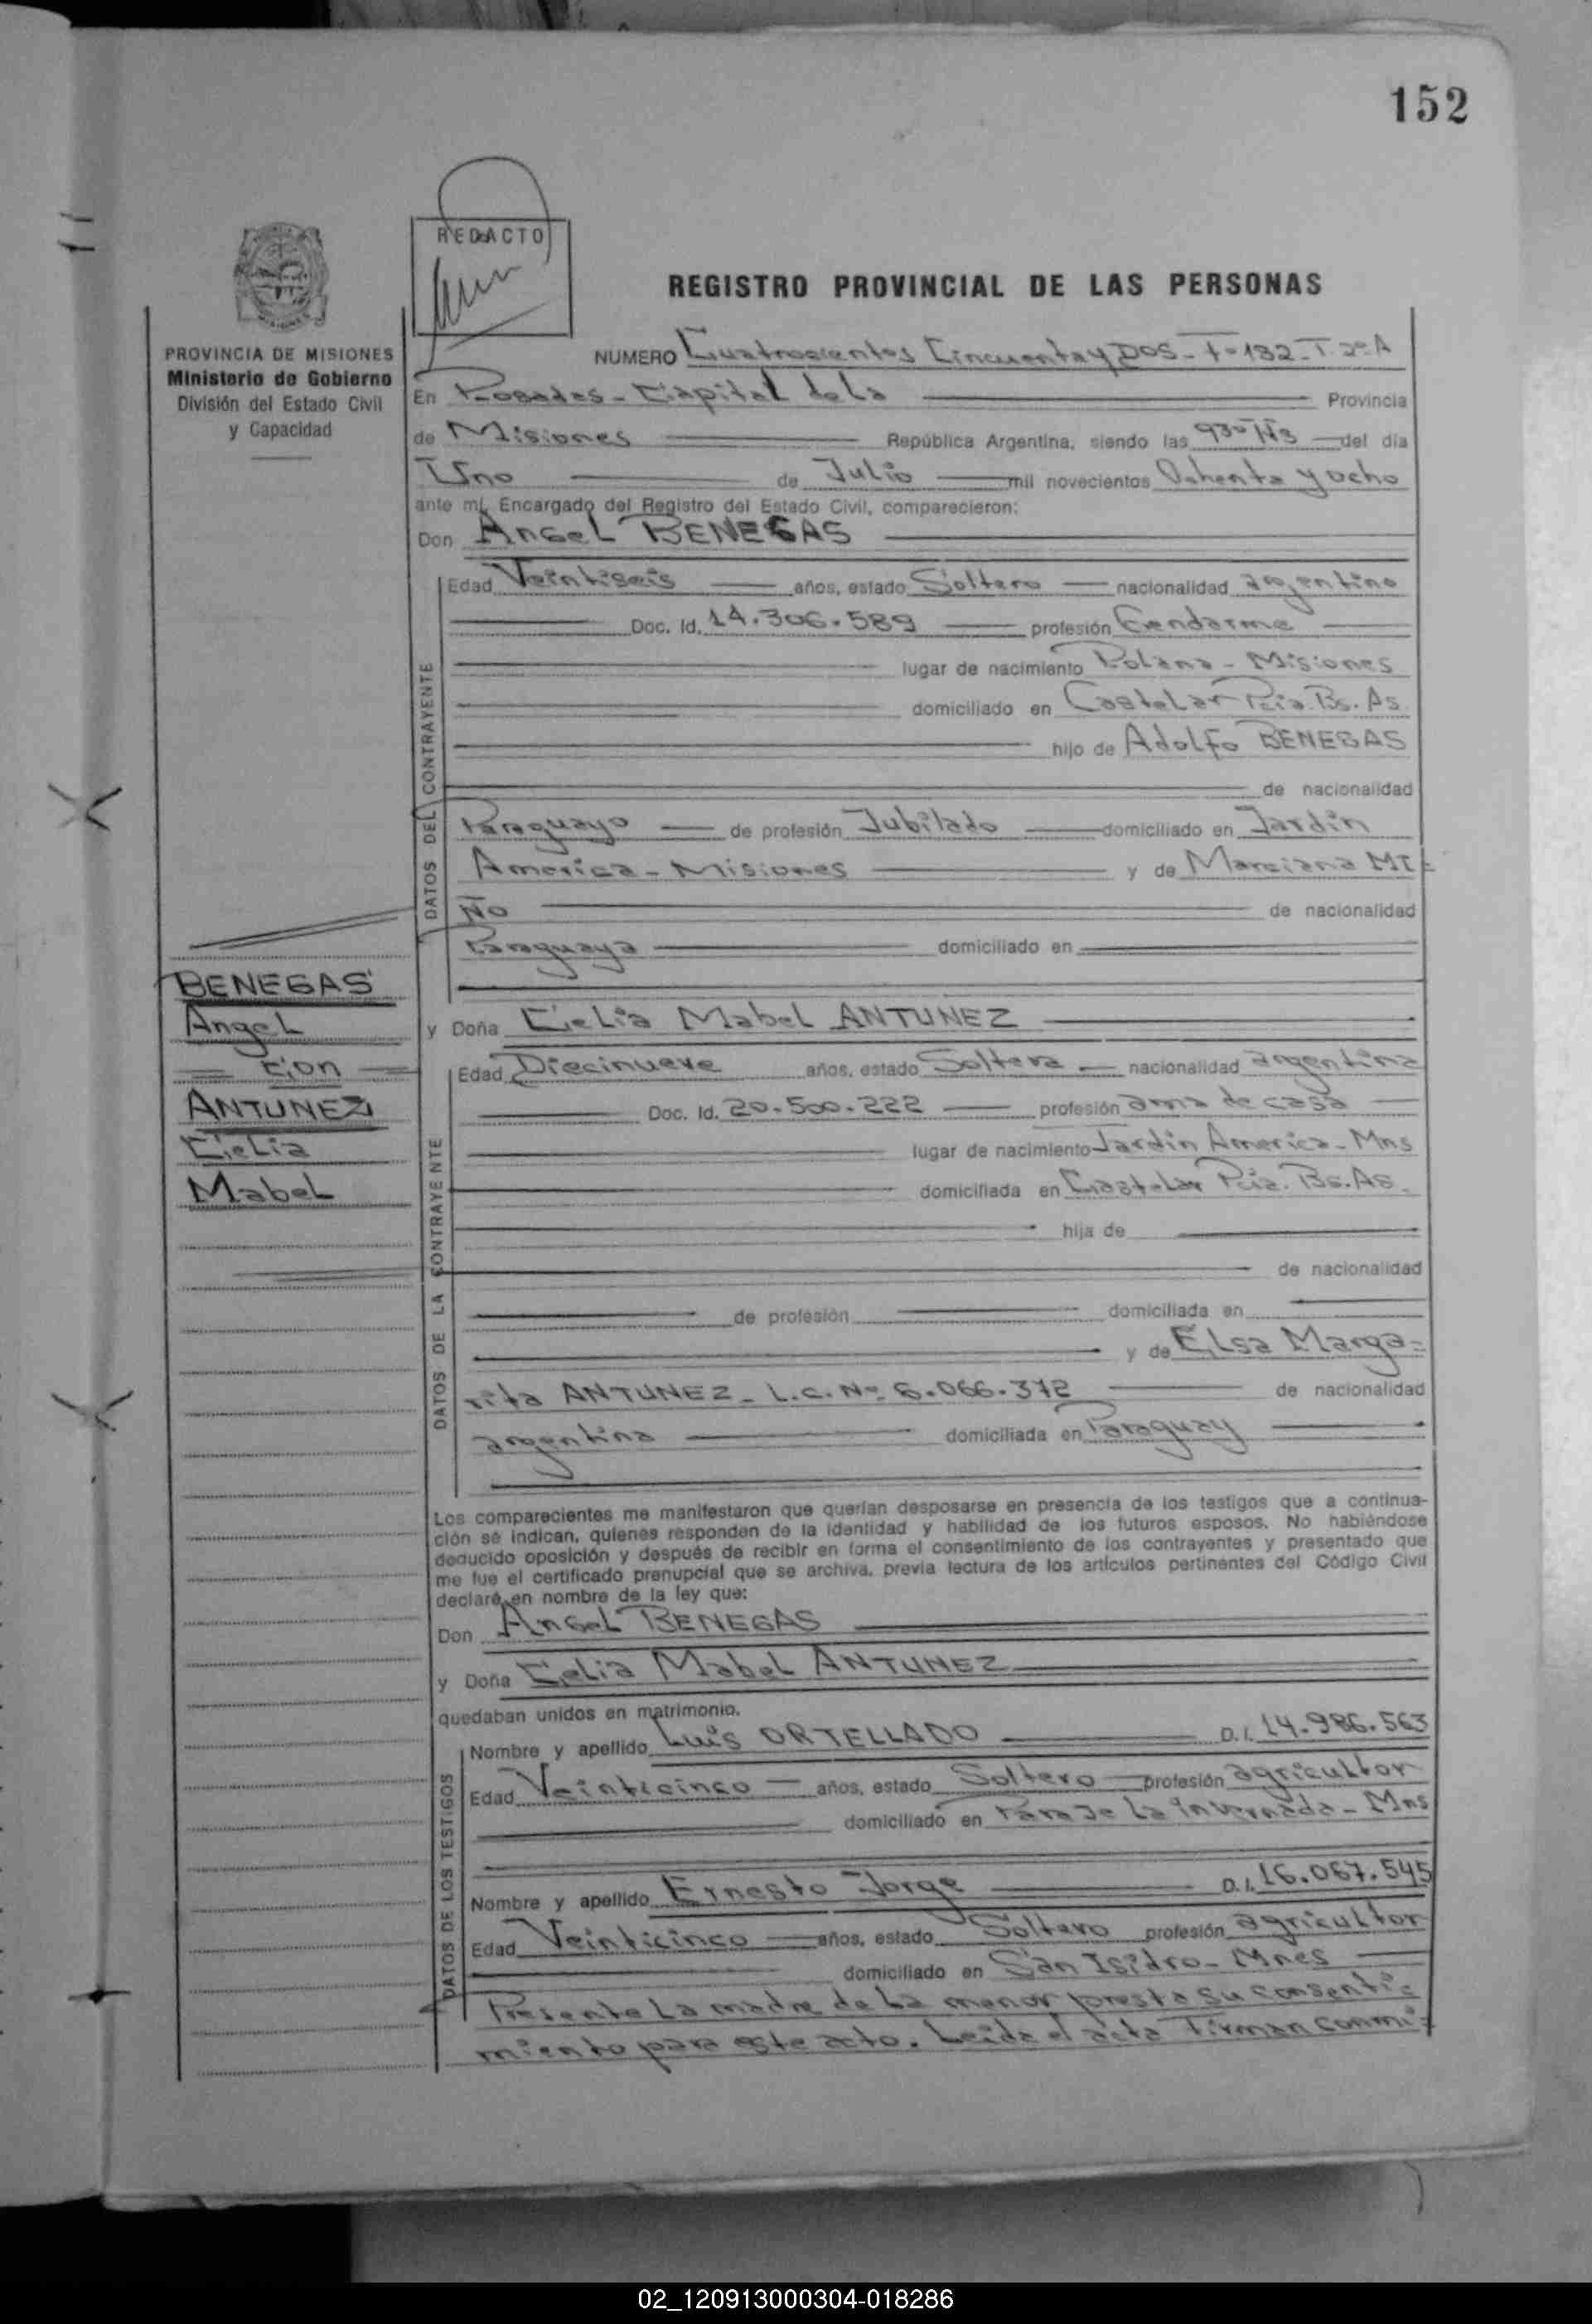 152
REDACTO
REGISTRO PROVINCIAL DE LAS PERSONAS
PROVINCIA DE MISIONES
Ministerio de Gobierno
División del Estado Civil
y Capacidad
NUMERO Cuatrocientos Cincuenta y Dos - T. 2º A
En Posadas - Capital de la Provincia
de Misiones República Argentina, siendo las 930 Hs del día
Uno de Julio mil novecientos Ochenta y ocho
ante mí, Encargado del Registro del Estado Civil, comparecieron:
Don Angel BENEGAS
Edad Veintiseis años, estado Soltero nacionalidad argentino
Doc. Id. 14.306.589 profesión Gendarme
lugar de nacimiento Polana - Misiones
domiciliado en Castelar Pcia. Bs. As
hijo de Adolfo BENEGAS
de nacionalidad
Paraguayo de profesión Jubilado domiciliado en Jardin
America - Misiones y de Marciana MI=
ÑO de nacionalidad
Paraguaya domiciliado en
DATOS DEL CONTRAYENTE
BENEGAS
Angel
con
ANTUNEZ
Celia
Mabel
y Doña Celia Mabel ANTUNEZ
Edad Diecinueve años, estado Soltera nacionalidad argentina
Doc. Id. 20.500.222 profesión ama de casa
lugar de nacimiento Jardin America - Mns
domiciliada en Castelar Pcia. Bs. As.
hija de
de nacionalidad
de profesión domiciliada en
y de Elsa Marga=
rita ANTUNEZ - L.C. Nº 6.066.372 de nacionalidad
argentina domiciliada en Paraguay
DATOS DE LA CONTRAYENTE
Los comparecientes me manifestaron que querían desposarse en presencia de los testigos que a continua-
ción se indican, quienes responden de la identidad y habilidad de los futuros esposos. No habiéndose
deducido oposición y después de recibir en forma el consentimiento de los contrayentes y presentado que
me fue el certificado prenupcial que se archiva, previa lectura de los artículos pertinentes del Código Civil
declaré en nombre de la ley que:
Don Angel BENEGAS
y Doña Celia Mabel ANTUNEZ
quedaban unidos en matrimonio.
Nombre y apellido Luis ORTELLADO D.I. 14.986.563
Edad Veinticinco años, estado Soltero profesión agricultor
domiciliado en Paraje La Invernada - Mns
Nombre y apellido Ernesto Jorge D.I. 16.067.545
Edad Veinticinco años, estado Soltero profesión agricultor
domiciliado en San Isidro - Mnes
DATOS DE LOS TESTIGOS
Presente la madre de la menor presta su consenti=
miento para este acto. Leida el acta firman conmi=
02_120913000304-018286